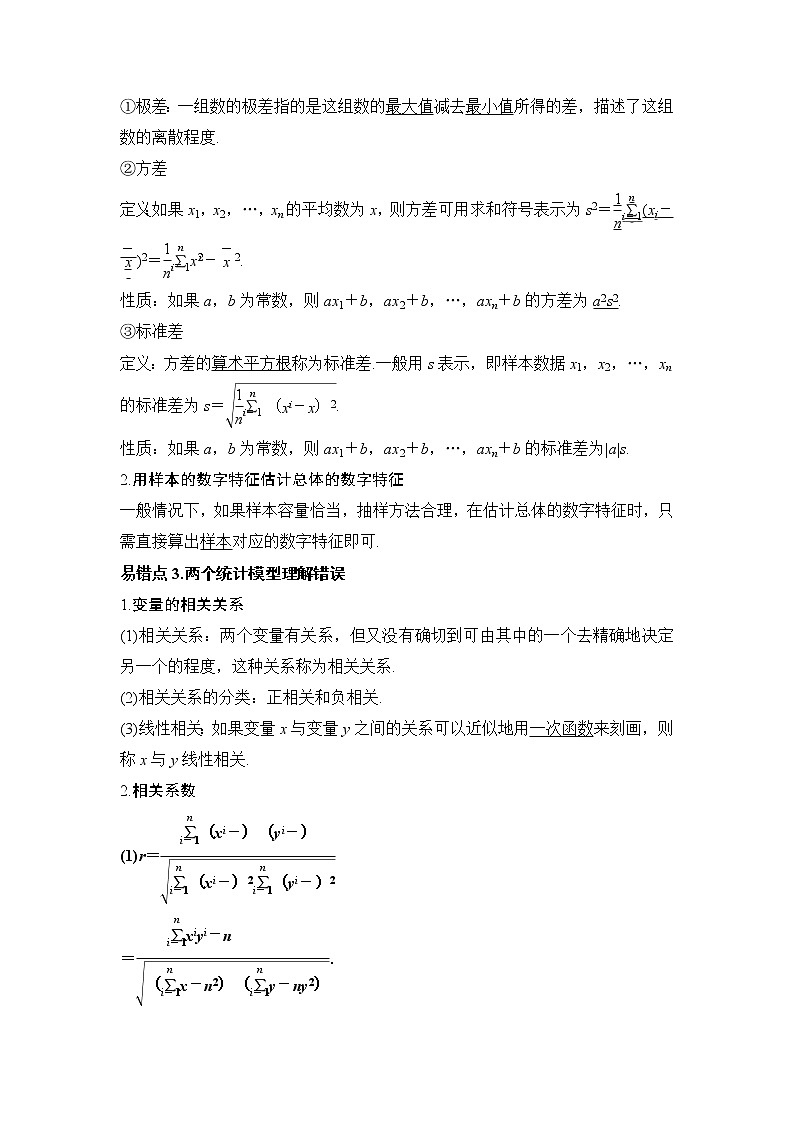 ①极差：一组数的极差指的是这组数的最大值减去最小值所得的差，描述了这组
数的离散程度.
②方差
定义如果 x1，x2，…，xn的平均数为 x，则方差可用求和符号表示为 s2＝1/n∑i＝1n(xi－
x̄)2＝1/n∑i＝1nx2i－x̄2.
性质：如果 a，b 为常数，则 ax1＋b，ax2＋b，…，axn＋b 的方差为 a2s2.
③标准差
定义：方差的算术平方根称为标准差.一般用 s 表示，即样本数据 x1，x2，…，xn
的标准差为 s＝√1/n∑i＝1n（xi－x）2.
性质：如果 a，b 为常数，则 ax1＋b，ax2＋b，…，axn＋b 的标准差为|a|s.
2.用样本的数字特征估计总体的数字特征
一般情况下，如果样本容量恰当，抽样方法合理，在估计总体的数字特征时，只
需直接算出样本对应的数字特征即可.
易错点 3.两个统计模型理解错误
1.变量的相关关系
(1)相关关系：两个变量有关系，但又没有确切到可由其中的一个去精确地决定
另一个的程度，这种关系称为相关关系.
(2)相关关系的分类：正相关和负相关.
(3)线性相关：如果变量 x 与变量 y 之间的关系可以近似地用一次函数来刻画，则
称 x 与 y 线性相关.
2.相关系数
(1)r＝∑i＝1n（xi－）（yi－）/√∑i＝1n（xi－）2∑i＝1n（yi－）2
＝∑i＝1nxiyi－n/√（∑i＝1nx－n2）（∑i＝1ny－ny2）.